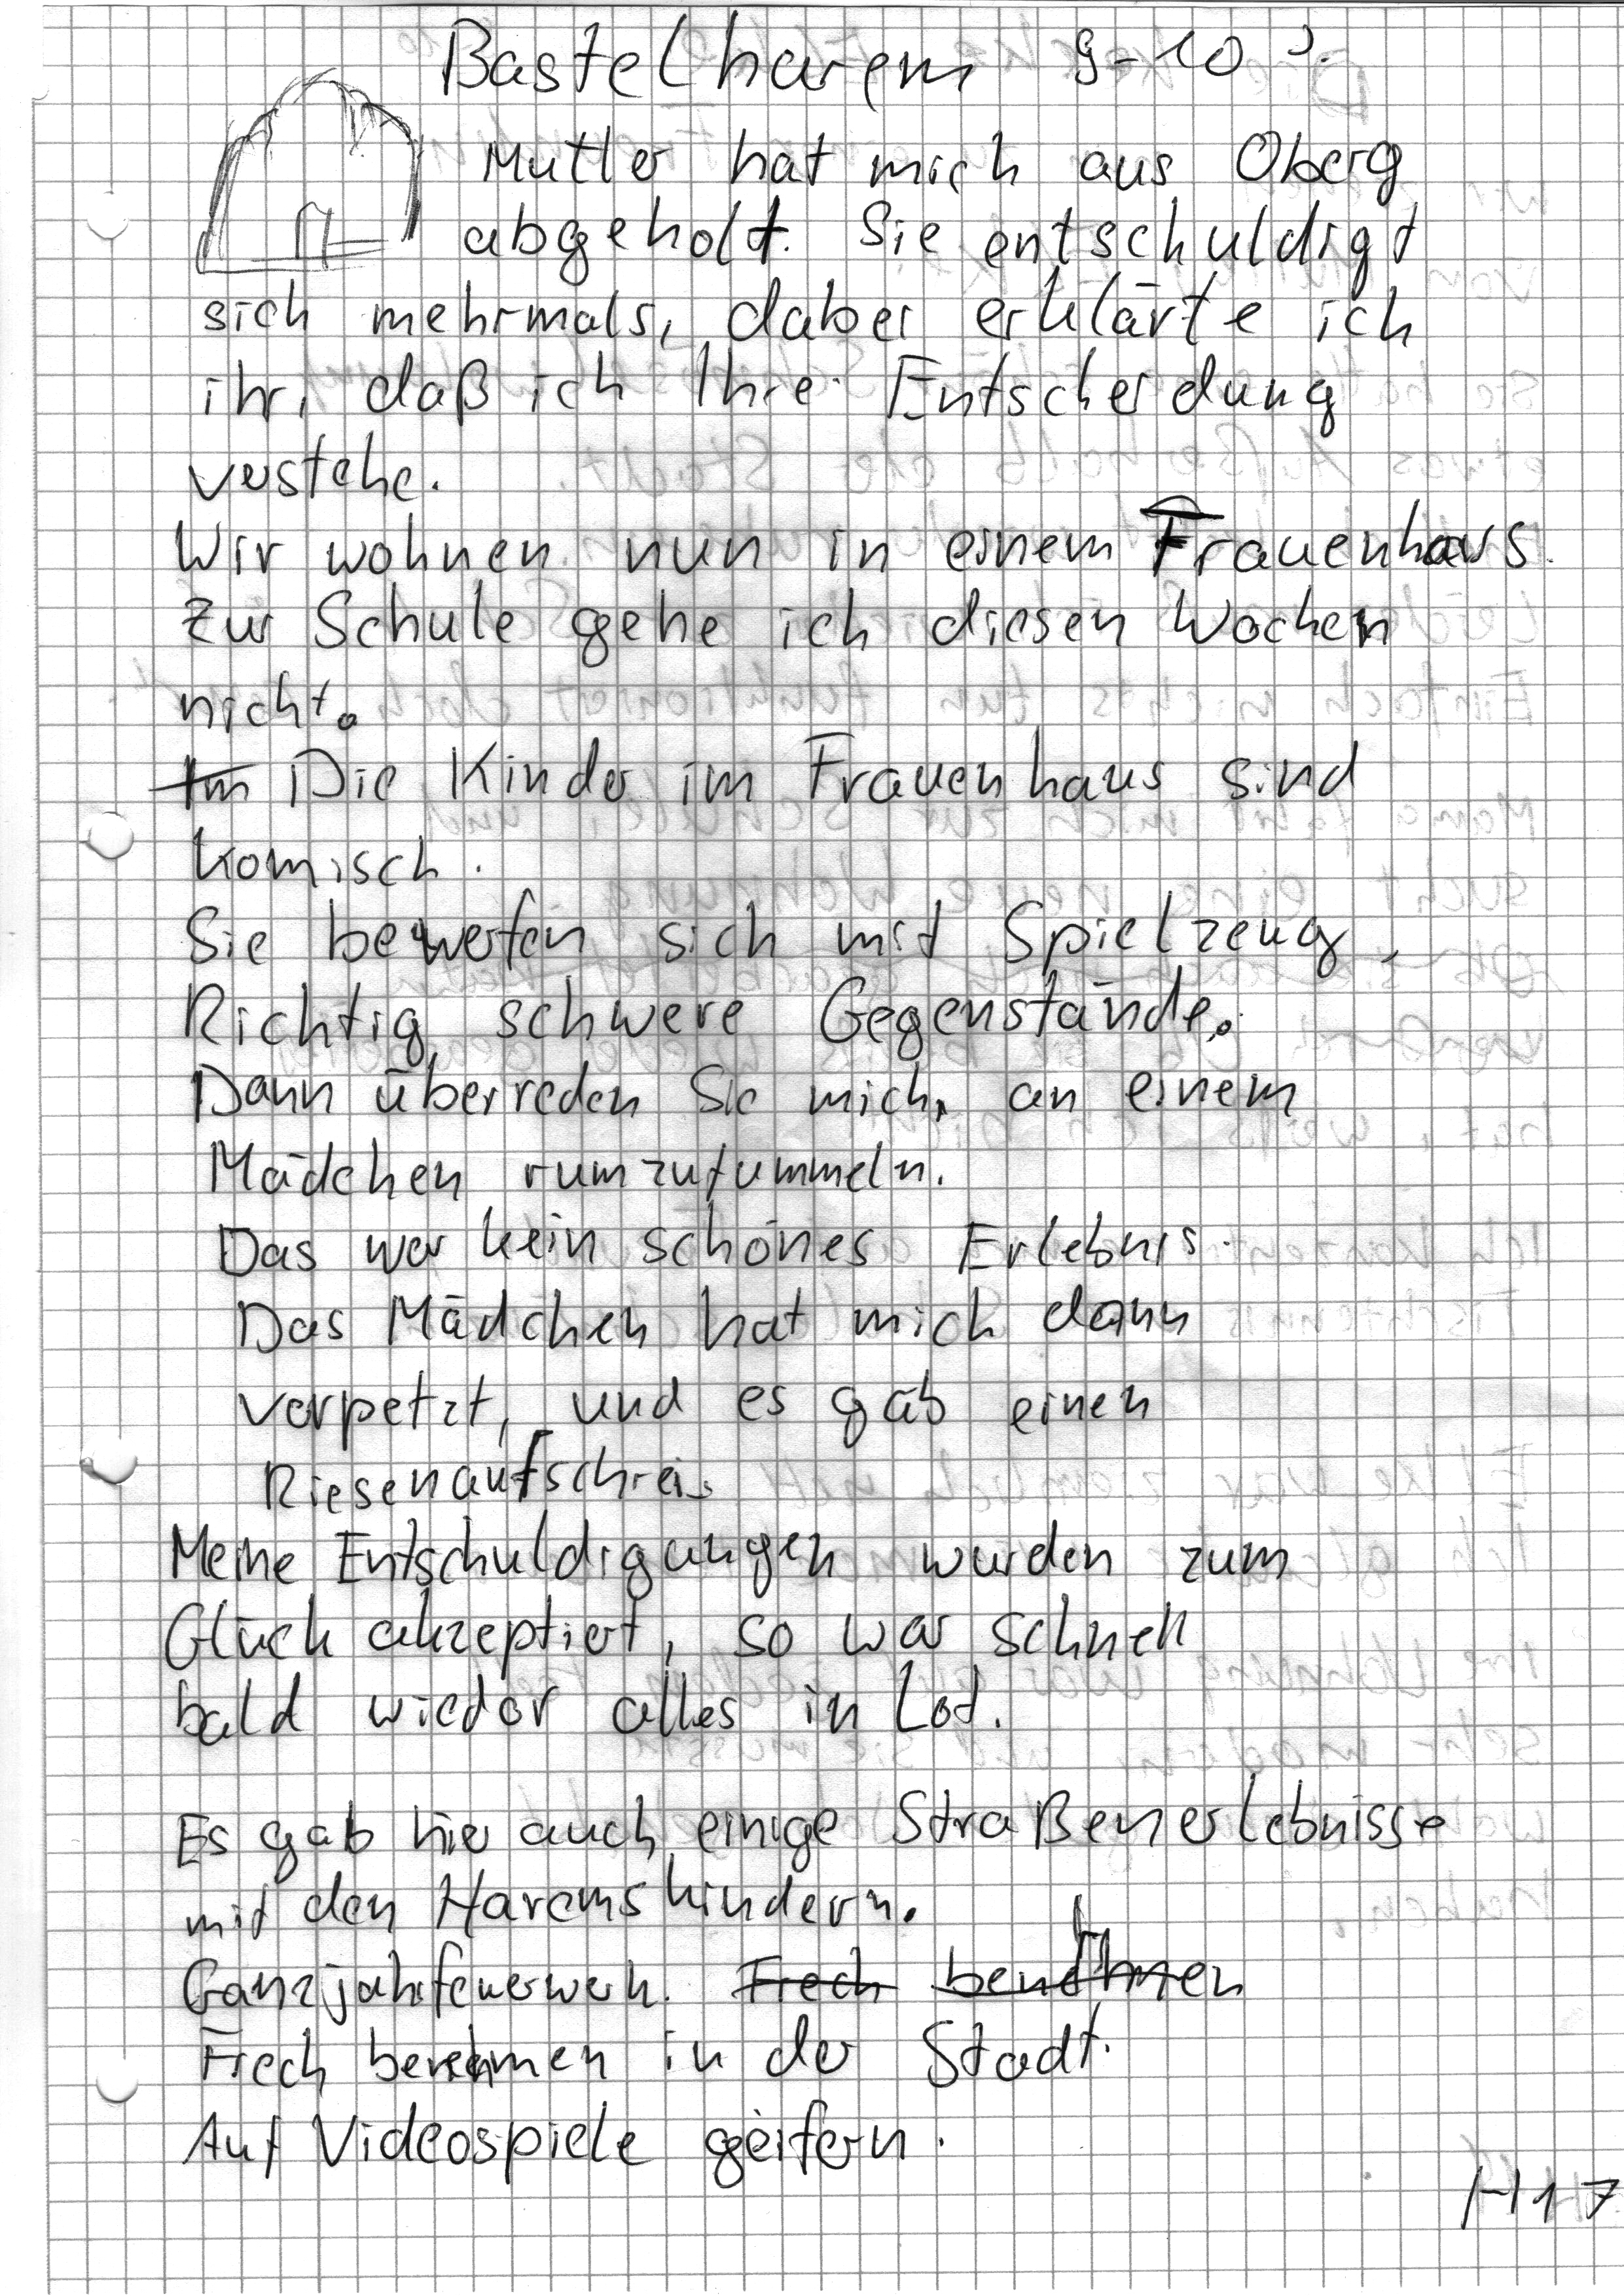 Bastelharem 9-10 J.
Mutter hat mich aus Oberg
abgeholt. Sie entschuldigt
sich mehrmals, dabei erklärte ich
ihr, daß ich Ihre Entscheidung
verstehe.
Wir wohnen nun in einem Frauenhaus.
Zur Schule gehe ich diesen Wochen
nicht.
Im Die Kinder im Frauenhaus sind
komisch.
Sie bewerfen sich mit Spielzeug,
Richtig schwere Gegenstände.
Dann überreden Sie mich, an einem
Mädchen rumzufummeln.
Das war kein schönes Erlebnis.
Das Mädchen hat mich dann
verpetzt, und es gab einen
Riesenaufschrei.
Meine Entschuldigungen wurden zum
Glück akzeptiert, so war schnell
bald wieder alles in Lot.
Es gab hier auch einige Straßenerlebnisse
mit den Haremskindern.
Ganzjahrfeuerwerk. Frech
Frech benehmen in der Stadt.
Auf Videospiele geifern.
H17